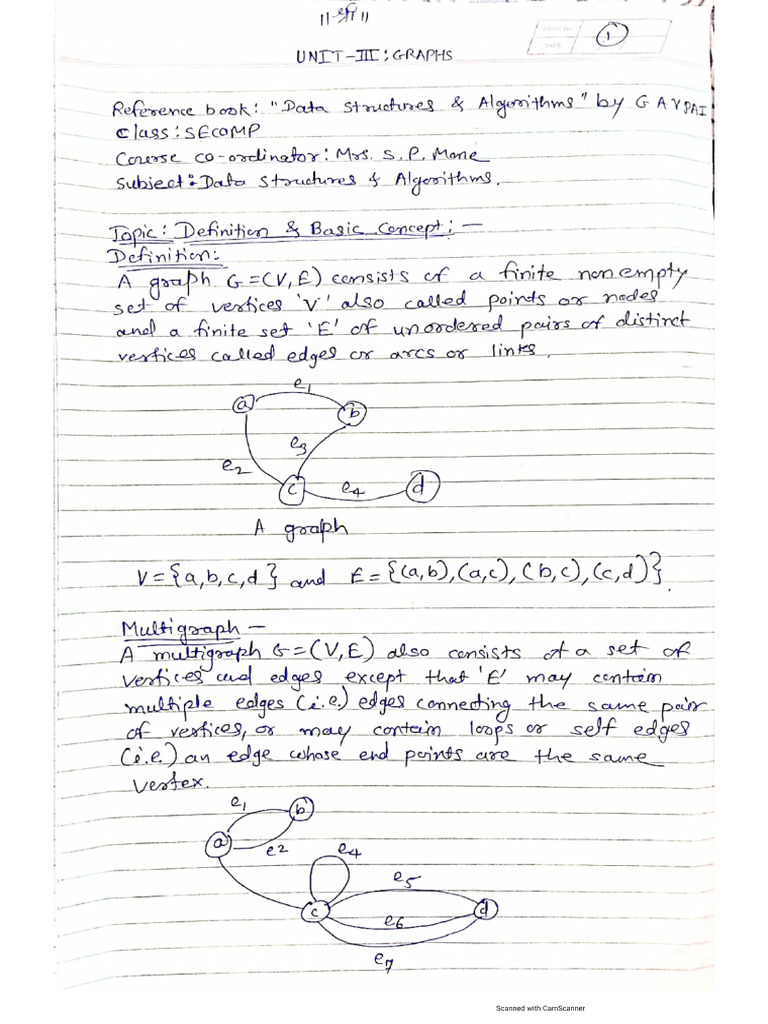 ॥ श्री ॥
PAGE No.
DATE
1
UNIT-III: GRAPHS
Reference book: "Data Structures & Algorithms" by G A V PAI
Class: SECOMP
Course co-ordinator: Mrs. S. P. Mane
Subject: Data Structures & Algorithms.
Topic: Definition & Basic Concept: —
Definition:
A graph G=(V,E) consists of a finite non empty
set of vertices 'V' also called points or nodes
and a finite set 'E' of unordered pairs of distinct
vertices called edges or arcs or links.
e1
a
b
e3
e2
c
e4
d
A graph
V={a,b,c,d} and E={(a,b),(a,c),(b,c),(c,d)}.
Multigraph —
A multigraph G=(V,E) also consists of a set of
vertices and edges except that 'E' may contain
multiple edges (i.e.) edges connecting the same pair
of vertices, or may contain loops or self edges
(i.e.) an edge whose end points are the same
vertex.
e1
b
a
e2
e4
e5
c
d
e6
e7
Scanned with CamScanner